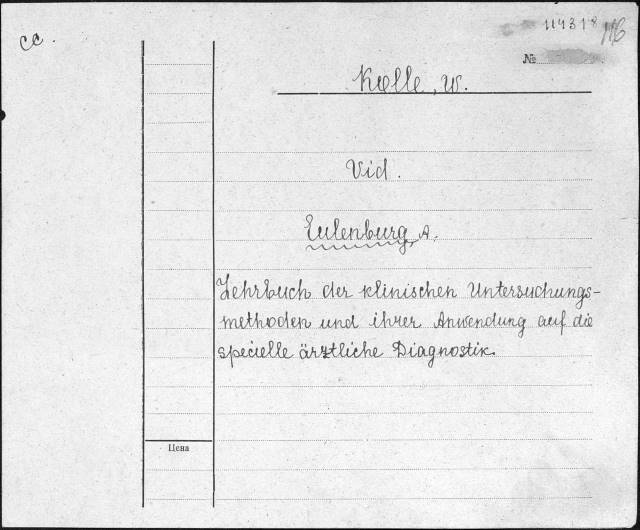 cc.
114318 116
№
Kolle, W.
Vid.
Eulenburg, A.
Lehrbuch der klinischen Untersuchungs-
methoden und ihrer Anwendung auf die
specielle ärztliche Diagnostik.
Цена